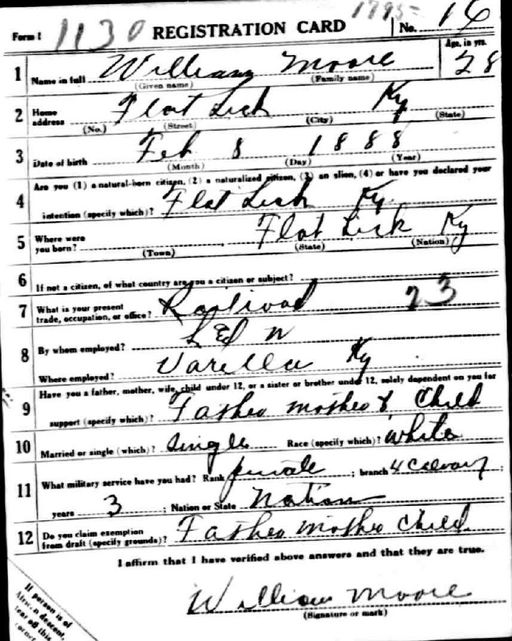 Form 1 1130 REGISTRATION CARD No. 16
Age, in yrs.
1 Name in full William Moore 28
(Given name) (Family name)
2 Home address Flat Lick Ky
(No.) (Street) (City) (State)
3 Date of birth Feb 8 1888
(Month) (Day) (Year)
Are you (1) a natural-born citizen, (2) a naturalized citizen, (3) an alien, (4) or have you declared your
4 intention (specify which)? Flat Lick Ky
5 Where were you born? Flat Lick Ky
(Town) (State) (Nation)
6 If not a citizen, of what country are you a citizen or subject?
7 What is your present trade, occupation, or office? Railroad 23
8 By whom employed? L & N
Where employed? Varilla Ky
Have you a father, mother, wife, child under 12, or a sister or brother under 12, solely dependent on you for
9 support (specify which)? Father mother & Child
10 Married or single (which)? Single Race (specify which)? White
11 What military service have you had? Rank private ; branch 4 Calvary ;
years 3 ; Nation or State Nation
12 Do you claim exemption from draft (specify grounds)? Father mother Child
I affirm that I have verified above answers and that they are true.
William Moore
(Signature or mark)
If person is of
descent,
off this
corner